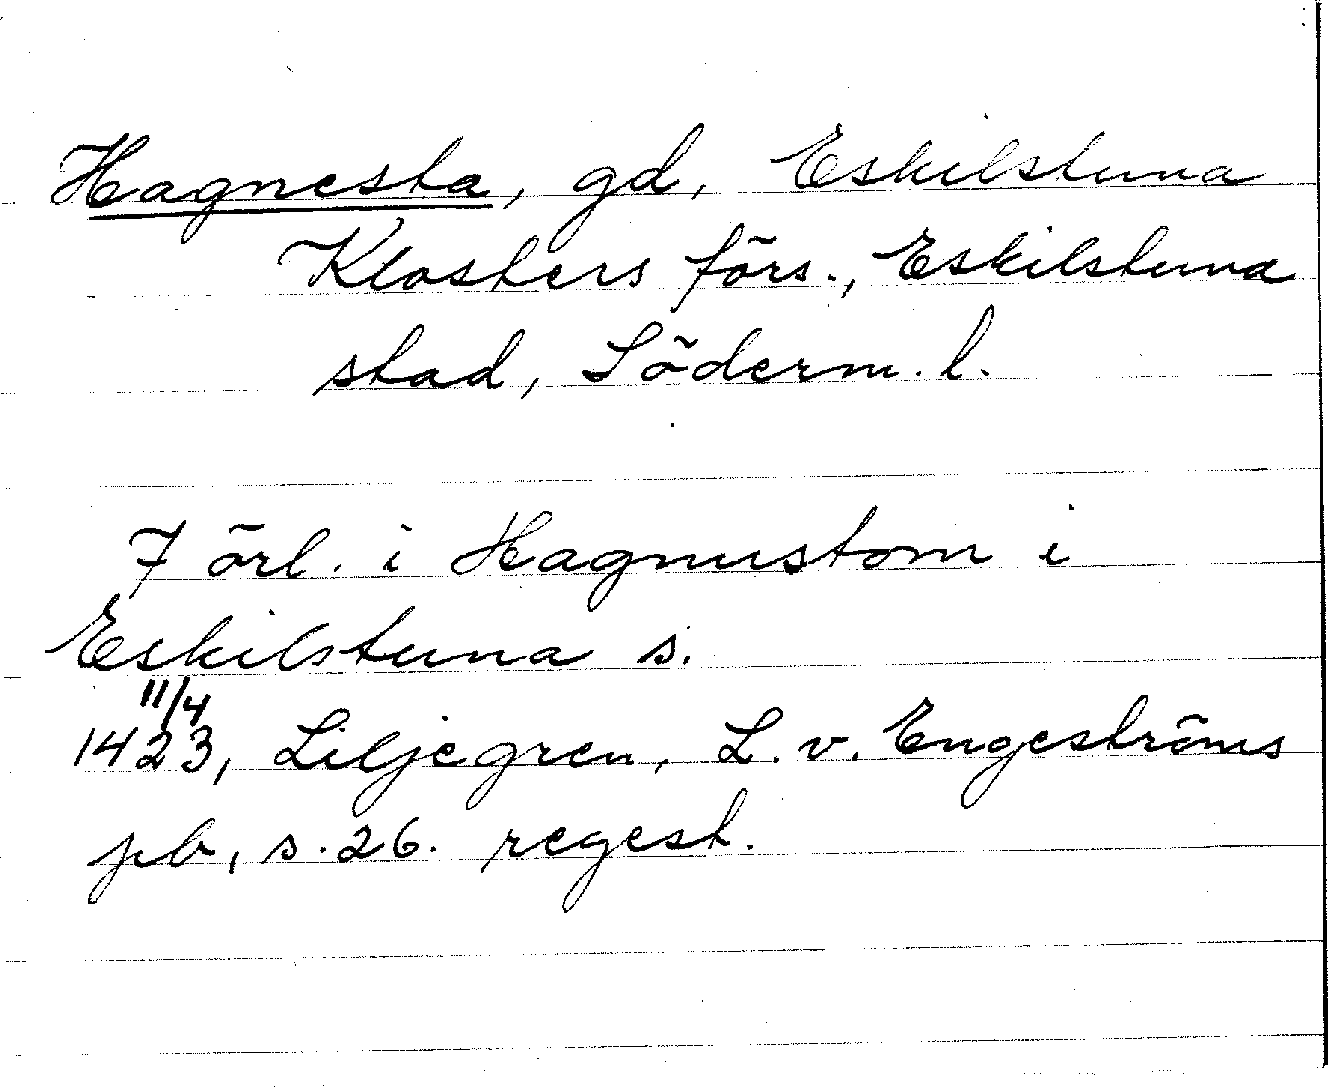 Hagnesta, gd, Eskilstuna
Klosters förs., Eskilstuna
stad, Söderm. l.
7 örl. i Hagnustom i
Eskilstuna s.
11/4
1423, Liljegren, L. v. Engeströms
pb, s. 26. regest.